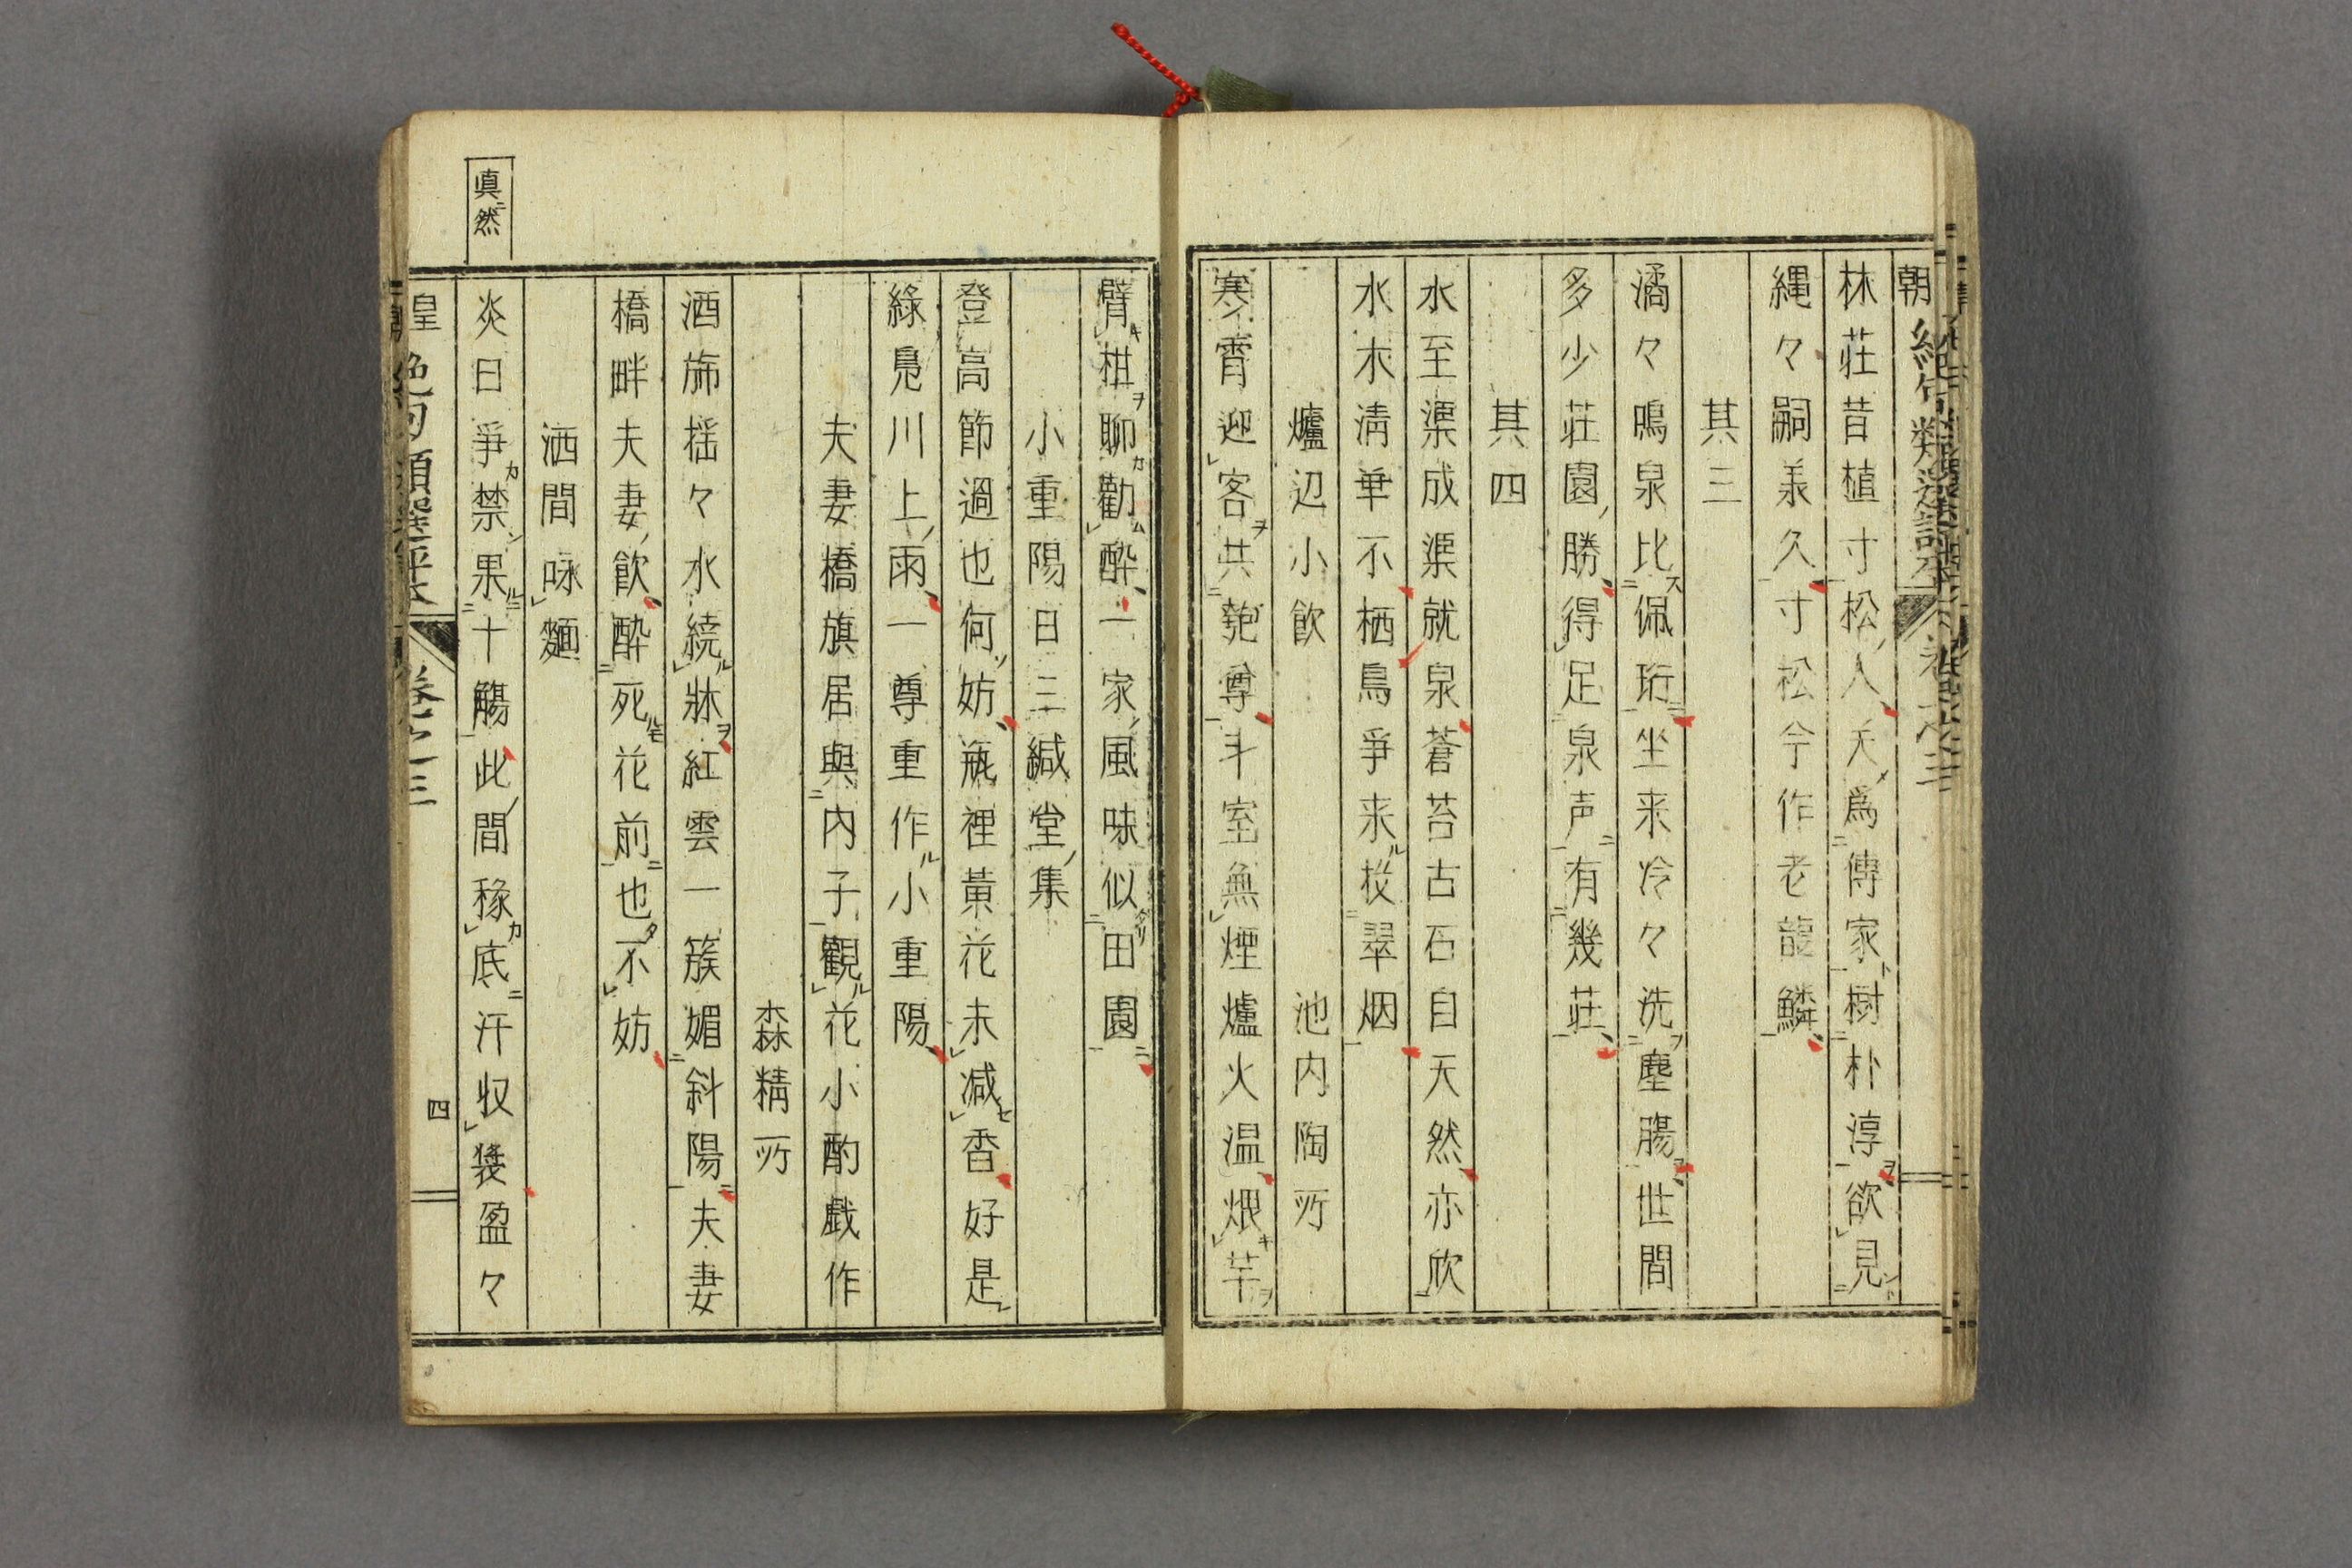 林荘昔植寸松人夭為傳家樹朴淳欲見
縄々嗣羕久寸松今作老龍鱗
其三
潏々鳴泉比佩珩坐来冷々洗塵腸世間
多少荘園勝得足泉声有幾荘
其四
水至渠成渠就泉蒼苔古石自天然亦欣
水木清華不栖鳥爭来投翠烟
爐辺小飲 池内陶所
寒霄迎客共匏尊斗室無煙爐火温煨芋
臂柑聊勸酔一家風味似田園
小重陽日三緘堂集
登高節過也何妨瓶裡黄花未减香好是
綠鳬川上雨一尊重作小重陽
夫妻橋旗居與内子観花小酌戯作
森精所
酒斾揺々水繞牀紅雲一簇媚斜陽夫妻
橋畔夫妻飲酔死花前也不妨
酒間咏麺
炎日爭禁果十觴此間稼底汗収漿盈々
真然
朝 絶句類選評本 巻之三
皇 絶句類選評本 巻之三 四